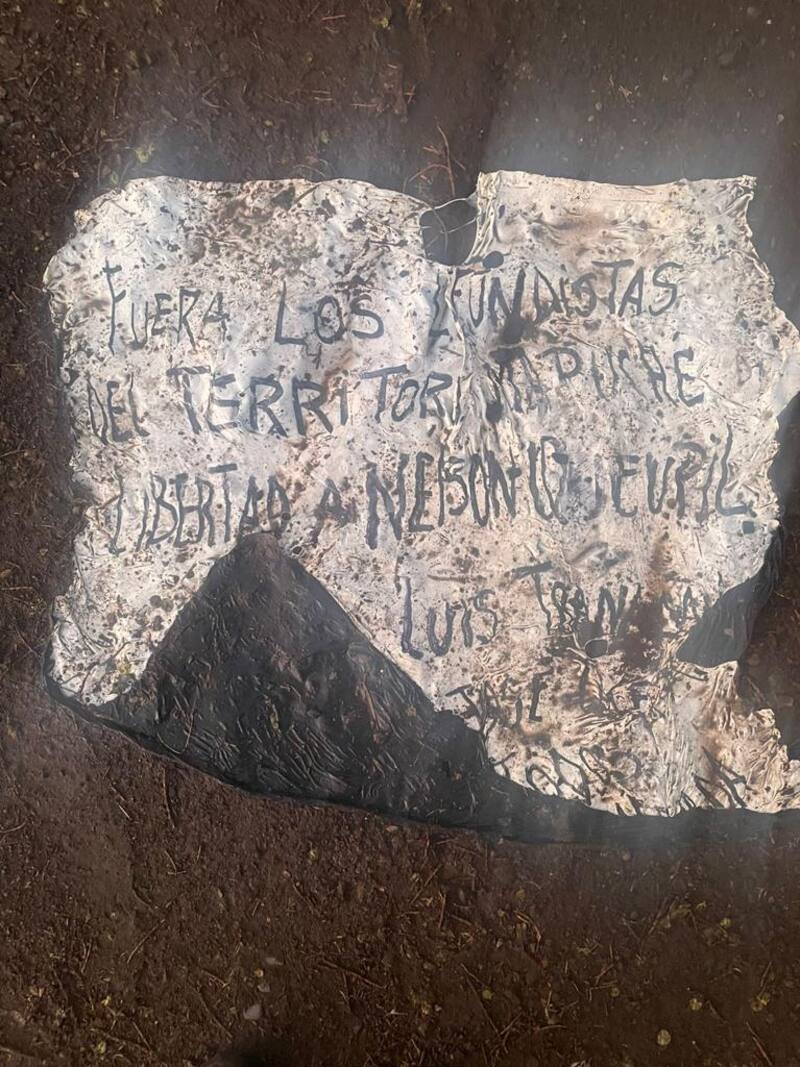 FUERA LOS LFUNDISTAS
DEL TERRITORI MAPUCHE
LIBERTAD A NELSON QUEUPIL
LUIS
JOSE
TODOS